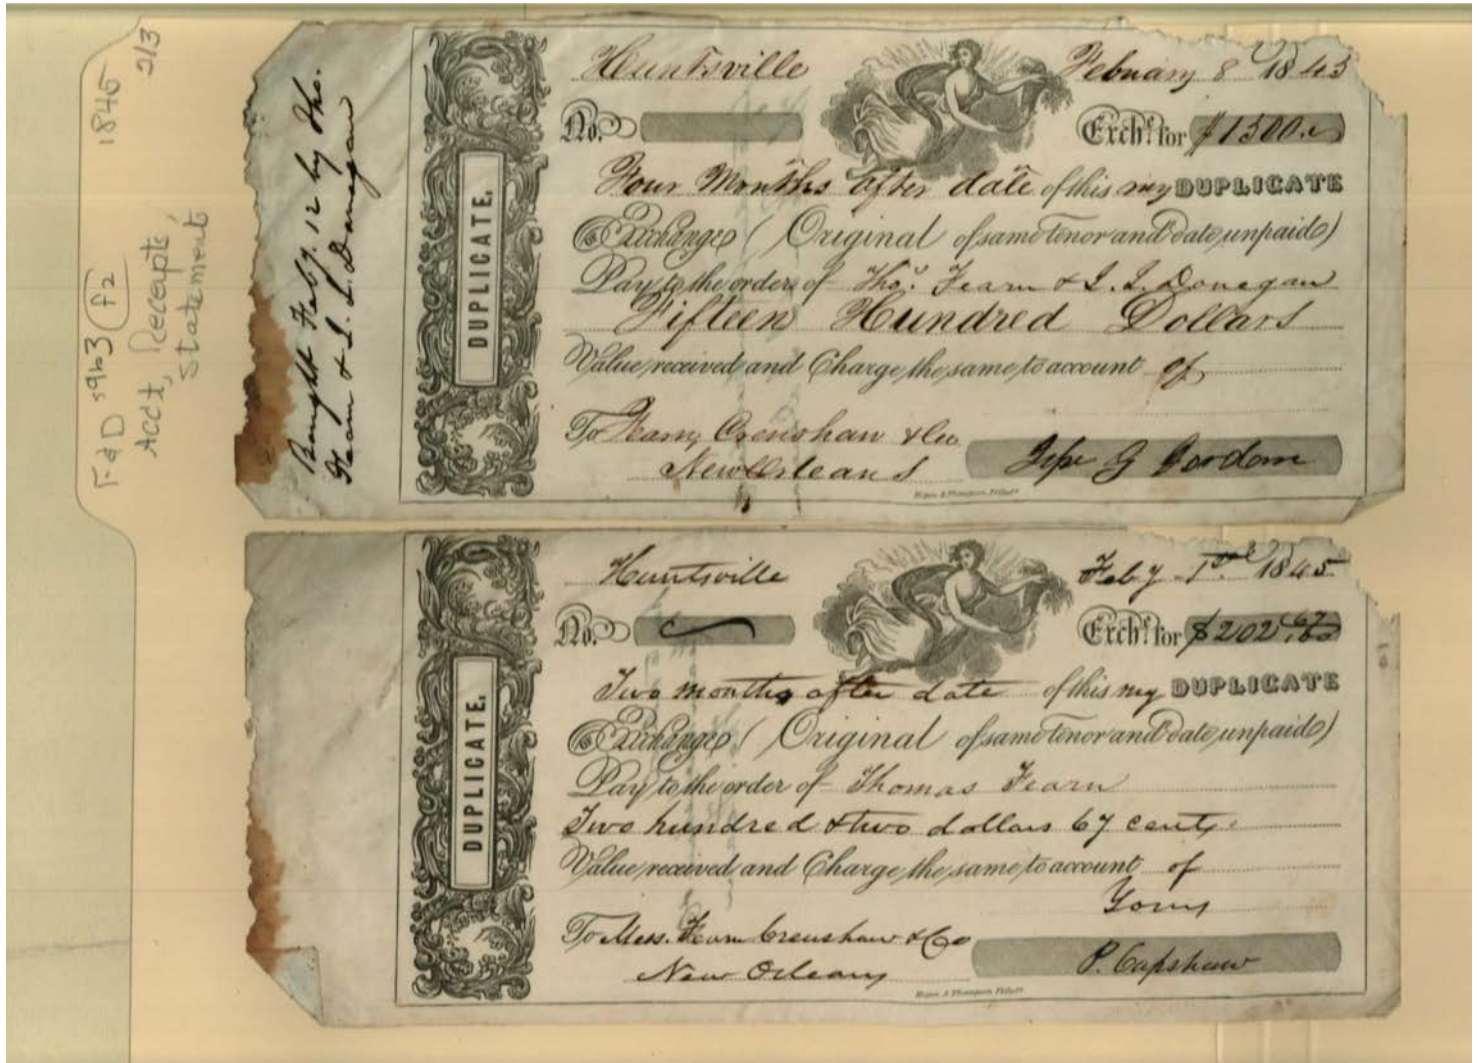 F&D s9b3 f2 1845 2/3
Acct, Receipts,
Statement
Bought Feby. 12 by Tho.
Fearn & J. J. Donegan
DUPLICATE.
Huntsville February 8 1845
No. Exche. for $1500.
Four Months after date of this my DUPLICATE
Exchange (Original of same tenor and date unpaid)
Pay to the order of Thos. Fearn & J. J. Donegan
Fifteen Hundred Dollars
Value received and Charge the same to account of
To Fearn, Crenshaw & Co
New Orleans G Gordon
DUPLICATE.
Huntsville Feby 1st 1845
No. Exche. for $202 67/100
Two months after date of this my DUPLICATE
Exchange (Original of same tenor and date unpaid)
Pay to the order of Thomas Fearn
Two hundred & two dollars 67 cents
Value received and Charge the same to account of
Yours
To Mess. Fearn Crenshaw & Co
New Orleans P. Capshaw